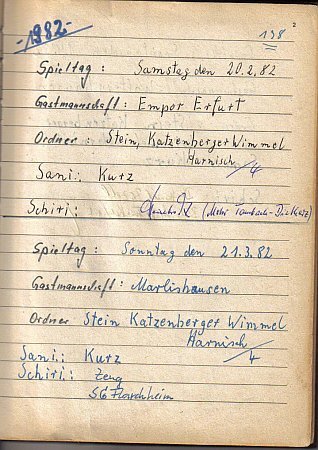 -1982-
138
2
Spieltag: Samstag den 20.2.82
Gastmannschaft: Empor Erfurt
Ordner: Stein, Katzenberger Wimmel
Harnisch
/4
Sani.: Kurz
Schiri: (Motor Tambach-Dietharz)
Spieltag: Sonntag den 21.3.82
Gastmannschaft: Marlishausen
Ordner Stein Katzenberger Wimmel
Harnisch
/4
Sani.: Kurz
Schiri.: Zeug
SG Flarchheim